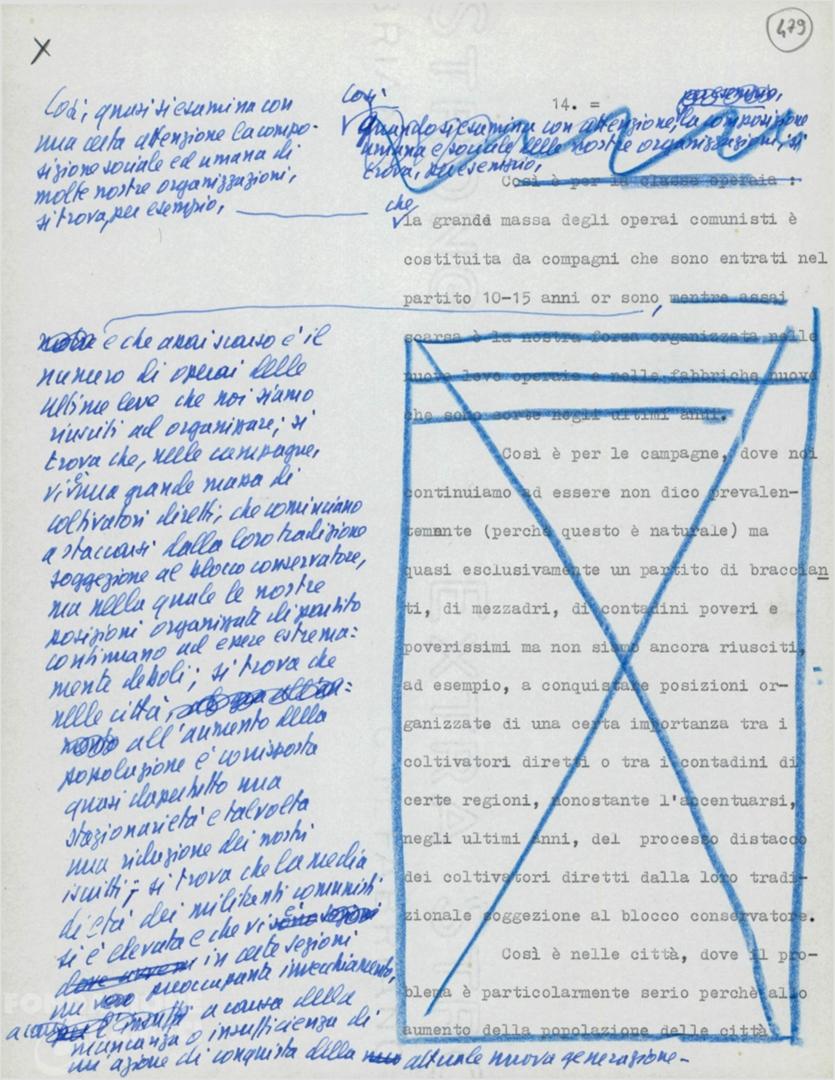 479
X
14. =
Così, quasi si esamina con
una certa attenzione la compo-
sizione sociale ed umana di
molte nostre organizzazioni,
si trova, per esempio,
Così
Quando si esamina con attenzione, la composizione
umana e sociale delle nostre organizzazioni, si
trova, per esempio,
Così è per la classe operaia :
che
la grande massa degli operai comunisti è
costituita da compagni che sono entrati nel
partito 10-15 anni or sono, mentre assai
scarsa è la nostra forza organizzata nelle
nuove leve operaie e nelle fabbriche nuove
che sono sorte negli ultimi anni.
Così è per le campagne, dove noi
continuiamo ad essere non dico prevalen-
temente (perchè questo è naturale) ma
quasi esclusivamente un partito di braccian
ti, di mezzadri, di contadini poveri e
poverissimi ma non siamo ancora riusciti,
ad esempio, a conquistare posizioni or-
ganizzate di una certa importanza tra i
coltivatori diretti o tra i contadini di
certe regioni, nonostante l'accentuarsi,
negli ultimi anni, del processo distacco
dei coltivatori diretti dalla loro tradi-
zionale soggezione al blocco conservatore.
Così è nelle città, dove il pro-
blema è particolarmente serio perchè allo
aumento della popolazione delle città
e che assai scarso è il
numero di operai delle
ultime leve che noi siamo
riusciti ad organizzare; si
trova che, nelle campagne,
vi è una grande massa di
coltivatori diretti, che cominciano
a staccarsi dalla loro tradizione
soggezione al blocco conservatore,
ma nella quale le nostre
posizioni organizzate di partito
continuano ad essere estrema:
mente deboli; si trova che
nelle città,
all'aumento della
popolazione è corrisposta
quasi dappertutto una
stazionarietà e talvolta
una riduzione dei nostri
iscritti; si trova che la media
di età dei militanti comunisti
si è elevata e che vi è
in certe sezioni
un preoccupante invecchiamento,
a causa della
mancanza o insufficienza di
un'azione di conquista della attuale nuova generazione-